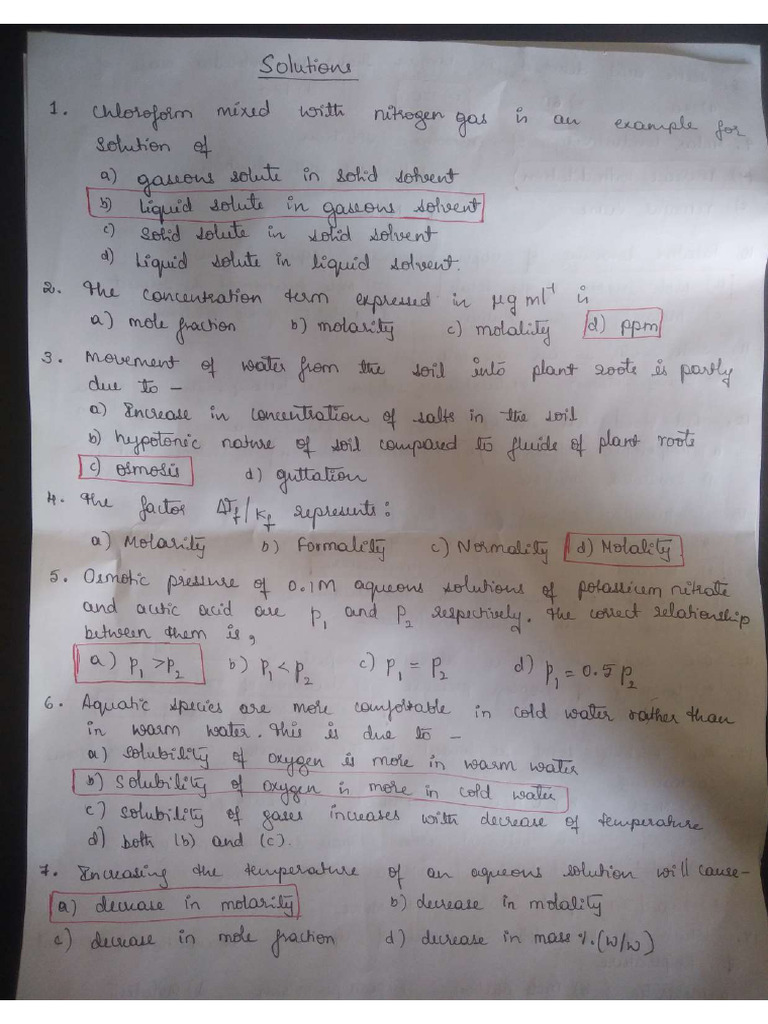 Solutions
1. Chloroform mixed with nitrogen gas is an example for
solution of
a) gaseous solute in solid solvent
b) Liquid solute in gaseous solvent
c) Solid solute in solid solvent
d) Liquid solute in liquid solvent.
2. The concentration term expressed in μg ml⁻¹ is
a) mole fraction b) molarity c) molality d) ppm
3. Movement of water from the soil into plant roots is partly
due to –
a) Increase in concentration of salts in the soil
b) hypotonic nature of soil compared to fluids of plant roots
c) osmosis d) guttation
4. The factor ΔTf/Kf represents:
a) Molarity b) Formality c) Normality d) Molality
5. Osmotic pressure of 0.1M aqueous solutions of potassium nitrate
and acetic acid are p₁ and p₂ respectively. The correct relationship
between them is,
a) p₁ > p₂ b) p₁ < p₂ c) p₁ = p₂ d) p₁ = 0.5 p₂
6. Aquatic species are more comfortable in cold water rather than
in warm water. This is due to –
a) solubility of oxygen is more in warm water
b) solubility of oxygen is more in cold water
c) solubility of gases increases with decrease of temperature
d) both (b) and (c).
7. Increasing the temperature of an aqueous solution will cause–
a) decrease in molarity b) decrease in molality
c) decrease in mole fraction d) decrease in mass %. (w/w)